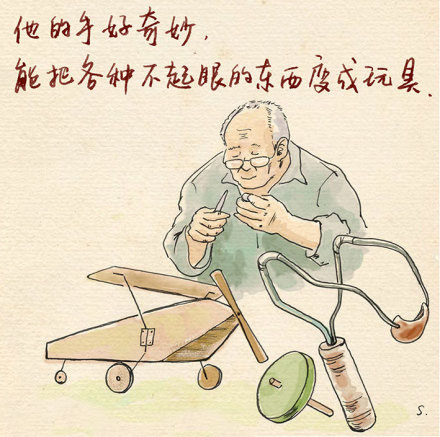 他的手好奇妙,
能把各种不起眼的东西变成玩具.
S.